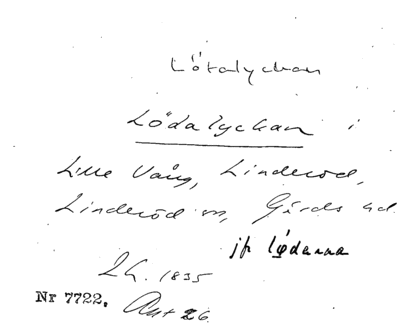 Lötalychan
Lödalychan i
Lille Vång, Linderöd,
Linderöd sn, Gärds hd.
jfr lødanna
Lh. 1835
Nr 7722. Akt 26